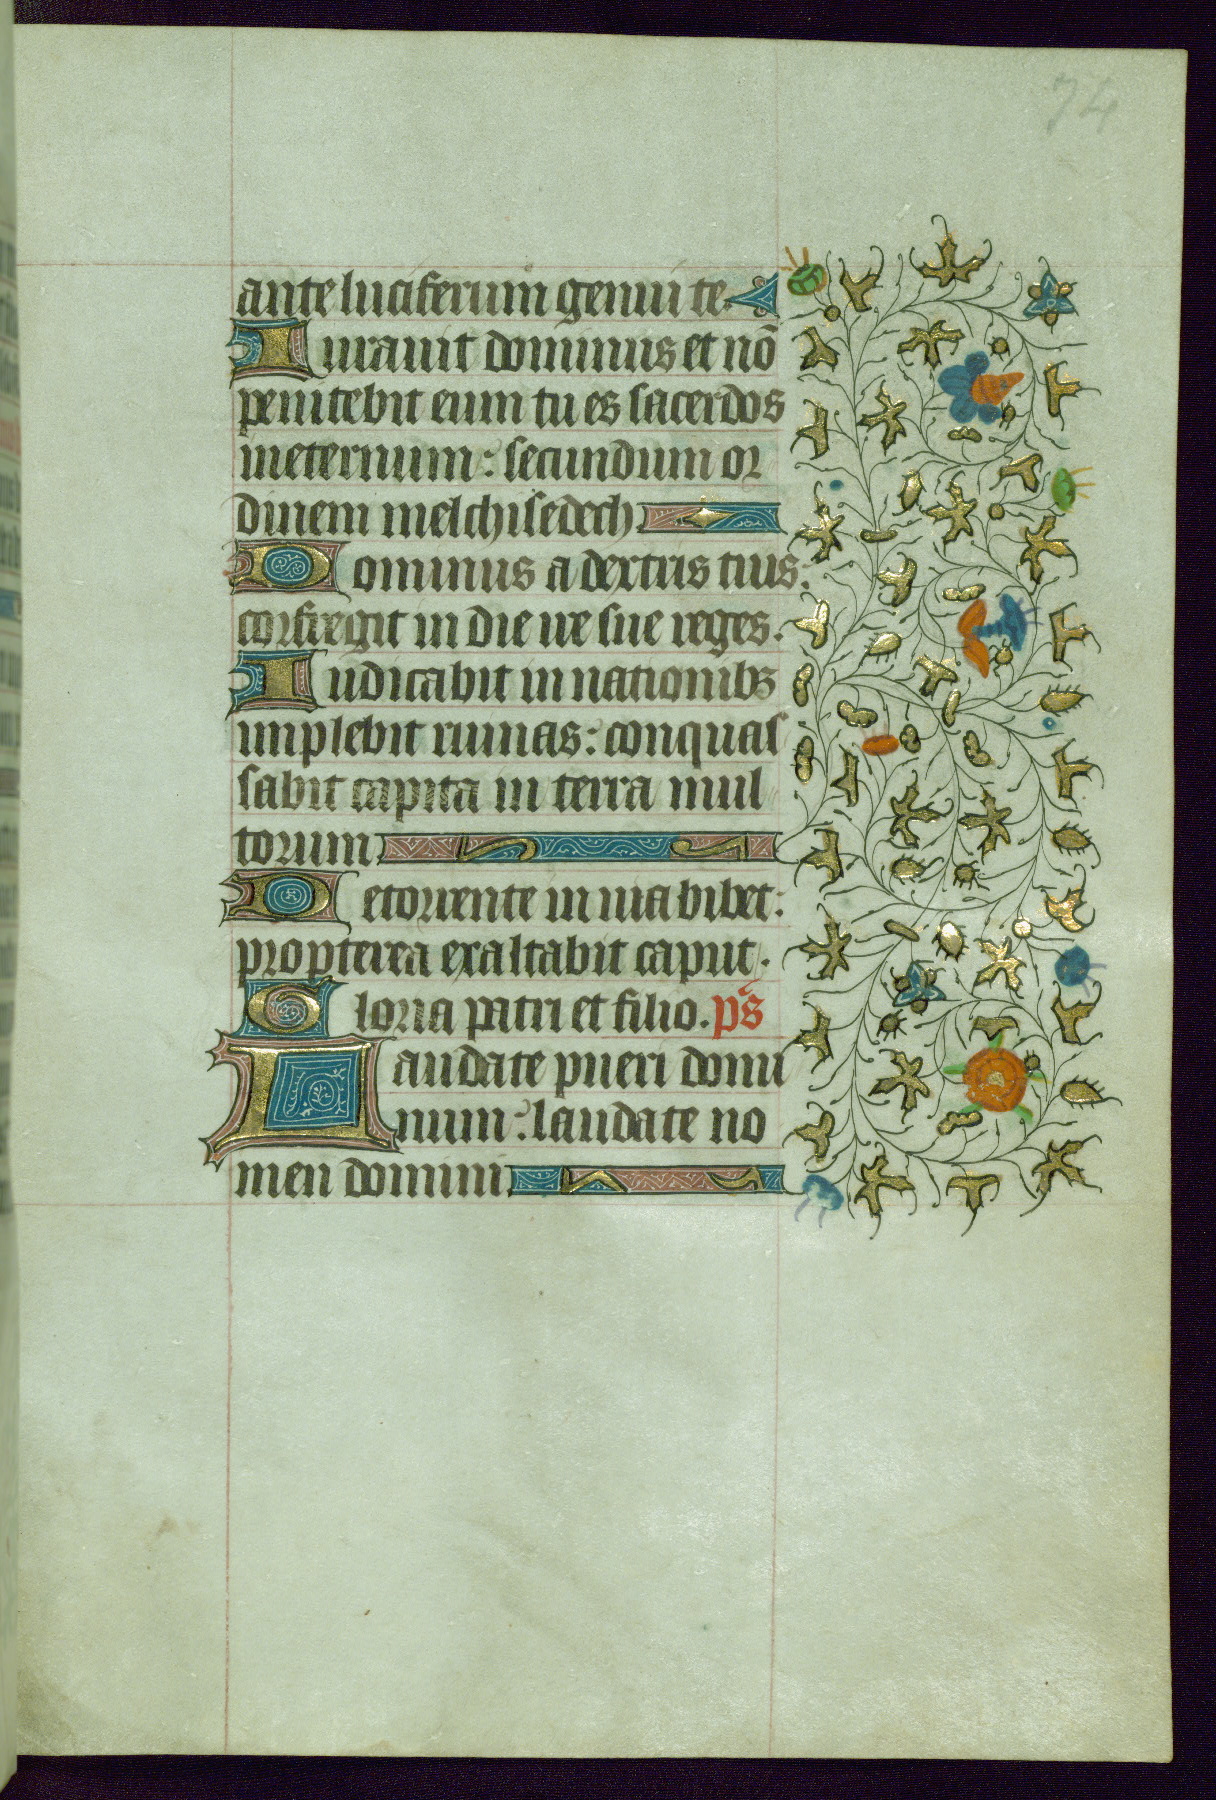 74
ante luciferum genui te.
Iurauit dominus et nō
penitebit eum tu es sacerdos
ineternum: secundum or
dinem melchisedech
Dominus a dextris tuis:
confregit in die ire sue reges.
Iudicabit in nationibꝫ
implebit ruinas: conquas
sabit capita in terra mul
torum
De torrente in uia bibet:
propterea exaltabit caput.
Gloria patri et filio. ps̄
Laudate pueri domi
num: laudate no
men domini